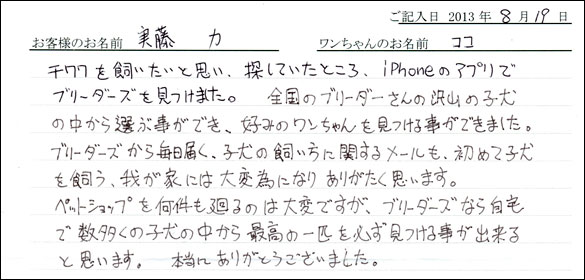 ご記入日 2013 年 8 月 19 日
お客様のお名前 実藤 力 ワンちゃんのお名前 ココ
チワワを飼いたいと思い、探していたところ、iPhoneのアプリで
ブリーダーズを見つけました。 全国のブリーダーさんの沢山の子犬
の中から選ぶ事ができ、好みのワンちゃんを見つける事ができました。
ブリーダーズから毎日届く、子犬の飼い方に関するメールも、初めて子犬
を飼う、我が家には大変為になりありがたく思います。
ペットショップを何件も廻るのは大変ですが、ブリーダーズなら自宅
で数多くの子犬の中から最高の一匹を必ず見つける事が出来る
と思います。 本当にありがとうございました。